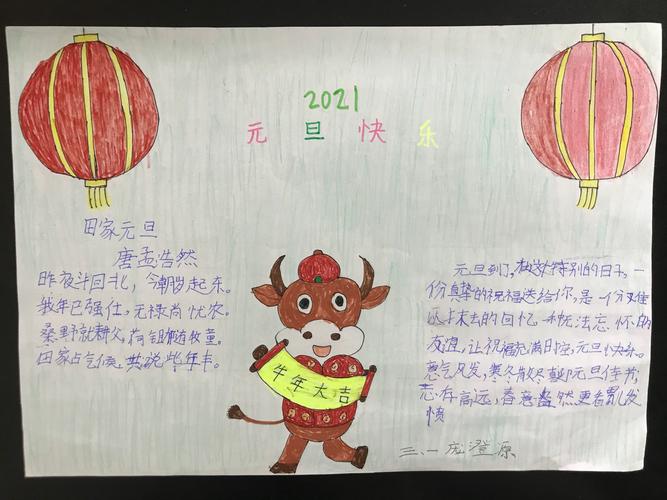 2021
元旦快乐
田家元旦
唐孟浩然
昨夜斗回北，今朝岁起东。
我年已强仕，无禄尚忧农。
桑野就耕父，荷锄随牧童。
田家占气候，共说年丰。
牛年大吉
元旦到了，在这特别的日子，一
份真挚的祝福送给你，是一份
去的回忆 一种无法忘怀的
友谊，让祝福充满时空，元旦快乐。
意气风发，寒冬散尽元旦佳节，
志存高远，春意盎然更看发
愤
三、一 庞澄源